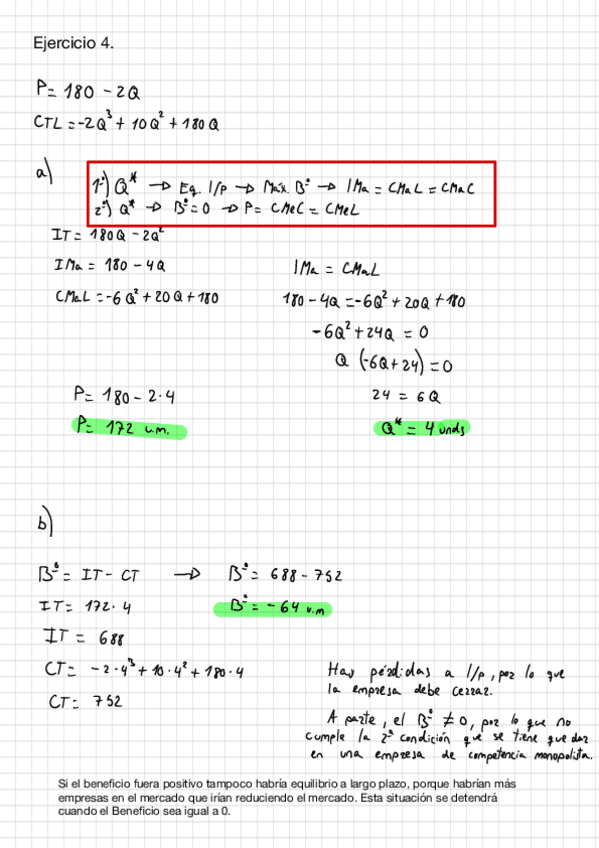 Ejercicio 4.
P = 180 - 2Q
CTL = -2Q³ + 10Q² + 180Q
a)
1º) Q* → Eq. l/p → Máx. Bº → IMa = CMaL = CMaC
2º) Q* → Bº = 0 → P = CMeC = CMeL
IT = 180Q - 2Q²
IMa = 180 - 4Q
CMaL = -6Q² + 20Q + 180
IMa = CMaL
180 - 4Q = -6Q² + 20Q + 180
-6Q² + 24Q = 0
Q (-6Q + 24) = 0
24 = 6Q
Q* = 4 unds
P = 180 - 2·4
P = 172 u.m.
b)
Bº = IT - CT → Bº = 688 - 752
IT = 172·4
Bº = -64 u.m
IT = 688
CT = -2·4³ + 10·4² + 180·4
CT = 752
Hay pérdidas a l/p, por lo que
la empresa debe cerrar.
A parte, el Bº ≠ 0, por lo que no
cumple la 2ª condición que se tiene que dar
en una empresa de competencia monopolista.
Si el beneficio fuera positivo tampoco habría equilibrio a largo plazo, porque habrían más
empresas en el mercado que irían reduciendo el mercado. Esta situación se detendrá
cuando el Beneficio sea igual a 0.